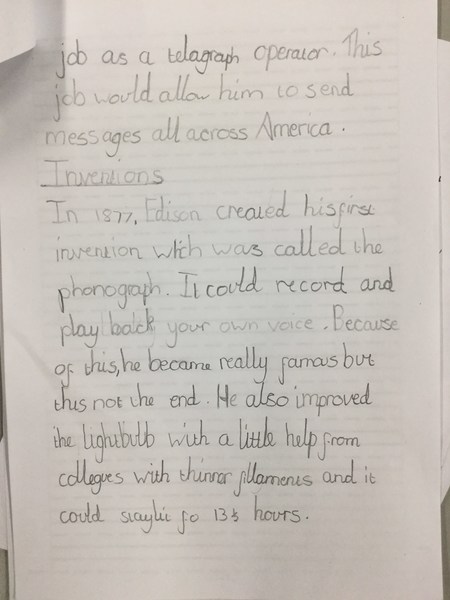 job as a telagraph operator. This
job would allow him to send
messages all across America.
Inventions
In 1877, Edison created his first
invention which was called the
phonograph. It could record and
play back your own voice. Because
of this, he became really famous but
this not the end. He also improved
the lightbulb with a little help from
collegues with thinner fillaments and it
could stay lit fo 13½ hours.